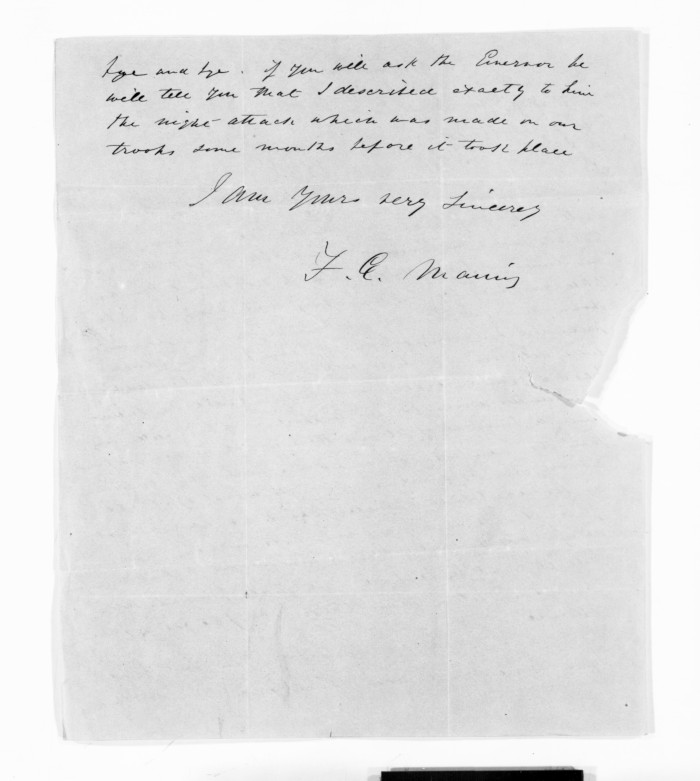 bye and bye. if you will ask the Governor he
will tell you that I described exactly to him
the night attack which was made on our
troops some months before it took place
I am yours very sincerely
F. E. Maning